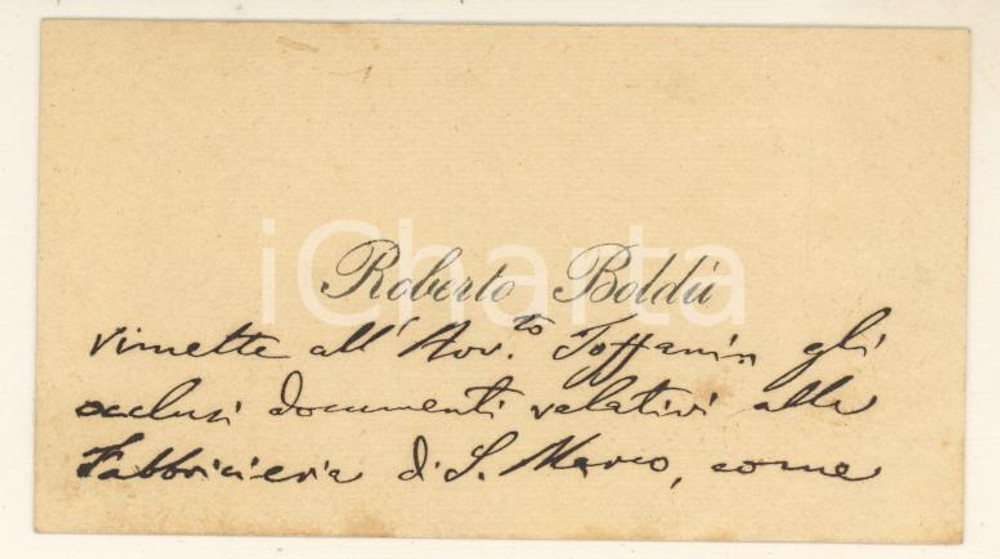 iCharta
Roberto Boldù
rimette all'Avv.to Toffanin gli
acclusi documenti relativi alla
Fabbricieria di S. Marco, come